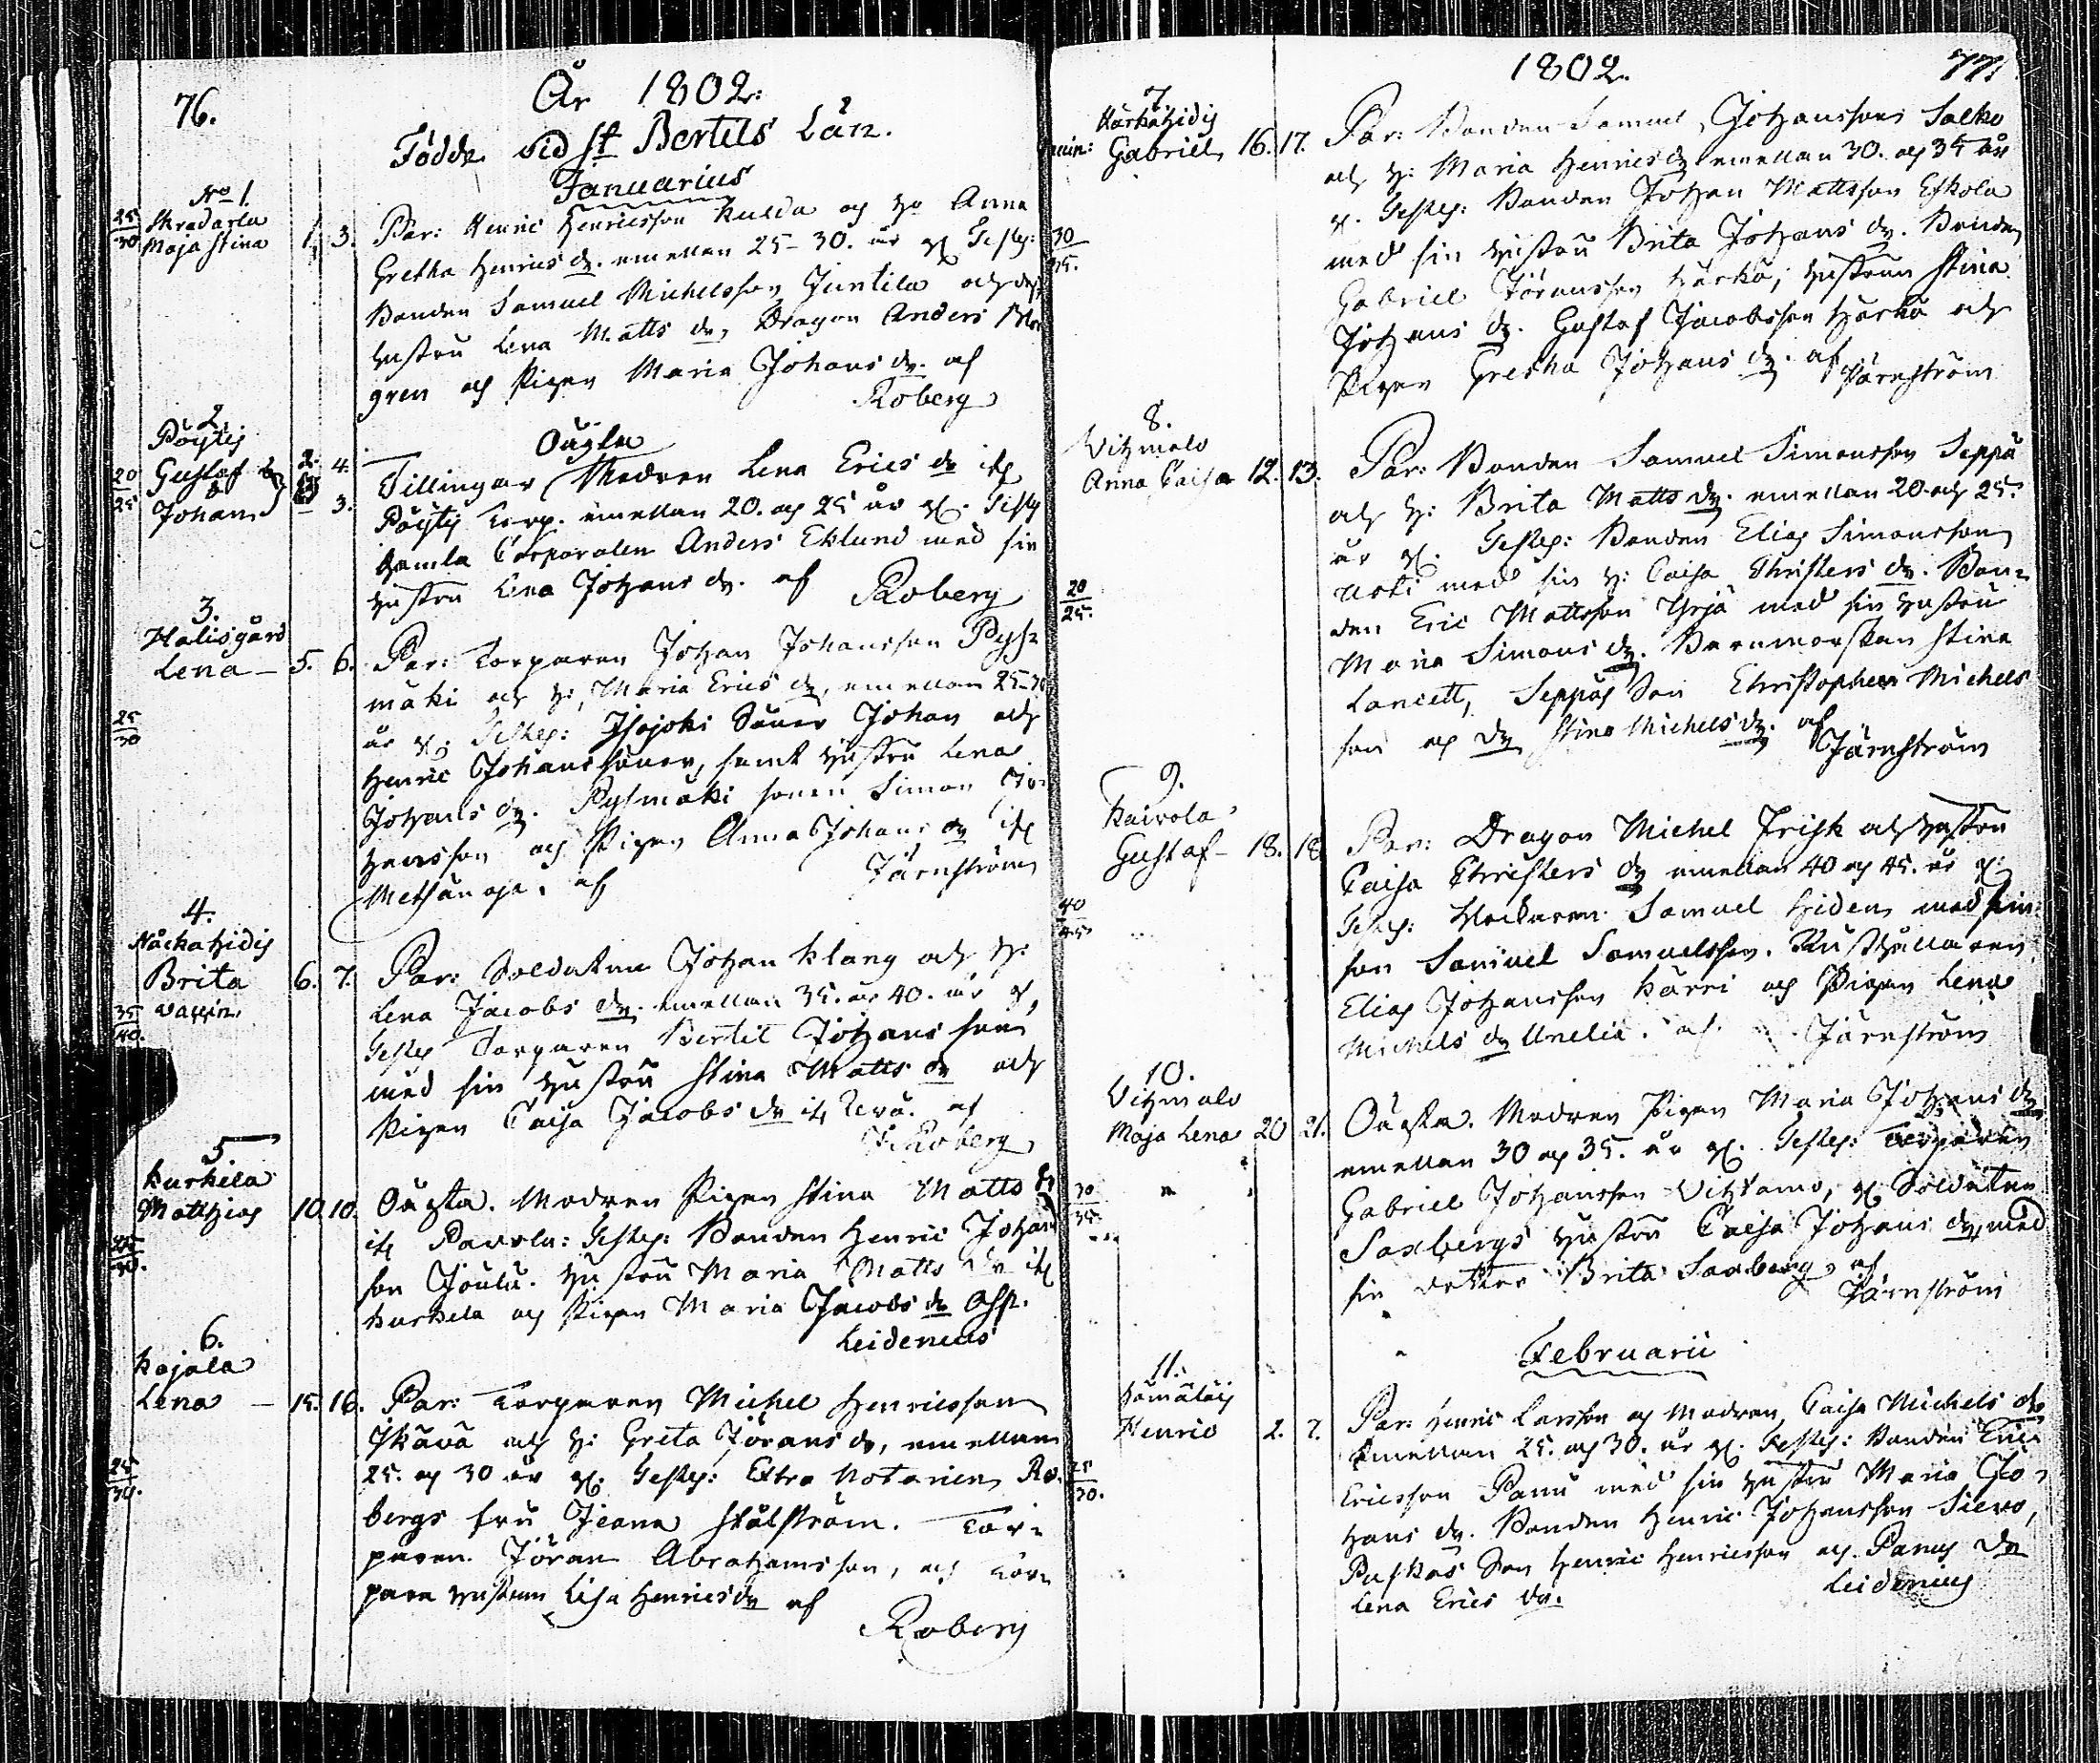 76.
År 1802.
Födde vid St Bertils Län.
Januarius
No 1.
Skradarla
Maja Stina 1. 3.
25
30
Par: Henric Henricsson Kulda och h. Anna
Gretha Henrics dr. emellan 25-30. år gl. Testes:
Bonden Samuel Michelsson Juntila och dess
hustru Lena Matts dr, Dragon Anders
gren och Pigan Maria Johans dr. af
Roberg
2.
Pöytis
Gustaf &
Johan
2. 4.
3.
20
25
Oägta
Tillingar, Modren Lena Erics dr ifr
Pöytis Torp. emellan 20. och 25 år gl. Test
Gamla Corporalen Anders Eklund med sin
hustru Lena Johans dr. af Roberg
3.
Halisgård
Lena – 5. 6.
25
30
Par: Torparen Johan Johansson Pyss
mäki och h: Maria Erics dr, emellan 25-30
år gl. Testes: Isojoki Söner Johan och
Henric Johanssöner, samt hustru Lena
Johans dr. Pysmäki sonen Simon Jo-
hansson och Pigan Anna Johans dr ifr
Metsänoja. af Järnström
4.
Nåckahidis
Brita 6. 7.
vaccin.
35
40.
Par: Soldaten Johan Klang och h:
Lena Jacobs dr. emellan 35. och 40. år gl.
Testes Torparen Bertil Johansson
med sin hustru Stina Matts dr och
Pigan Caisa Jacobs dr ifr af
Roberg
5
Kurkela
Matthias 10. 10.
30.
Oägta. Modren Pigan Stina Matts dr
ifr Pavola: Testes: Bonden Henric Johans
son Joulu. hustru Maria Matts dr ifr
Kurkela och Pigan Maria Jacobs dr
Leidenius
6.
Kojala
Lena – 15. 16.
25
30.
Par: Torparen Michel Henricsson
Ikävä och h: Greta Jörans dr, emellan
25. och 30 år gl. Testes: Extra Notarien Ro-
bergs fru Jeana Stålström. Tor-
paren Jöran Abrahamsson, och Tor-
pare hustrun Lisa Henrics dr af
Roberg
1802. 77.
7
Härkähidis
vaccin: Gabriel 16. 17.
30
35.
Par: Bonden Samuel Johansson Salko
och h: Maria Henrics dr emellan 30. och 35 år
gl. Testes: Bonden Johan Mattsson Eskola
med sin hustru Brita Johans dr. Bonden
Gabriel Jöransson Härkä, hustrun Stina
Johans dr. Gustaf Jacobsson Härkä och
Pigan Gretha Johans dr. af Järnström
8.
Vihmalo
Anna Caisa 12. 13.
20
25.
Par: Bonden Samuel Simonsson Seppä
och h: Brita Matts dr. emellan 20. och 25.
år gl. Testes: Bonden Elias Simonsson
Uoti med sin h: Caisa Christers dr. Bon-
den Eric Mattsson Yrjä med sin hustru
Maria Simons dr. Barnmorskan Stina
Lancett, Seppäs Son Christopher Michels
son och dr Stina Michels dr. af
Järnström
9.
Kairola
Gustaf – 18. 18
40
45.
Par: Dragon Michel Frisk och hustru
Caisa Christers dr emellan 40 och 45. år gl.
Testes: Klockaren Samuel Hiden med sin
son Samuel Samuelsson. Rusthållaren
Elias Johansson Kärri och Pigan Lena
Michels dr Unelia. af Järnström
10.
Vihmalo
Maja Lena 20 21.
30
35.
Oägta. Modren Pigan Maria Johans dr
emellan 30 och 35. år gl. Testes: Torparen
Gabriel Johansson Vihtamo, gl. Soldaten
Saxbergs hustru Caisa Johans dr, med
sin dotter Brita Saxberg, af
Järnström
Februarii
11.
Hämäläis
Henric 2. 7.
25
30.
Par: Henric Larsson och Modren, Caisa Michels dr,
Emellan 25. och 30. år gl. Testes: Bonden Eric
Ericsson Panu med sin hustru Maria Jo-
hans dr. Bonden Henric Johansson Siewo,
Puskas Son Henric Henricsson och Panus dr
Lena Erics dr. Leidenius